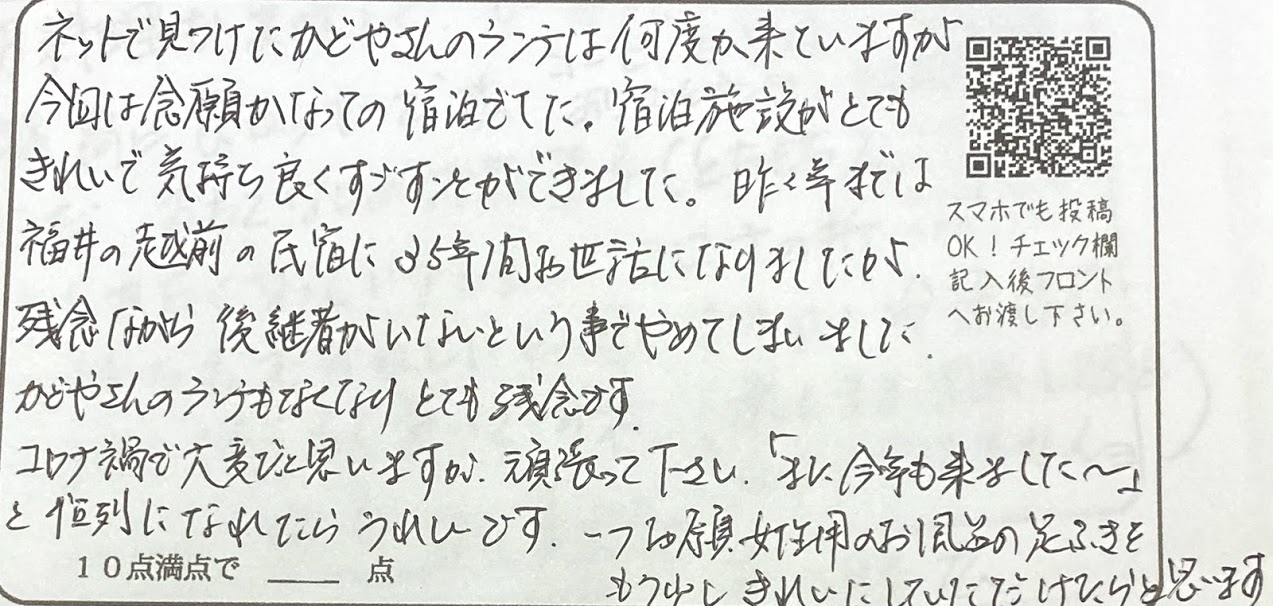 ネットで見つけたかどやさんのランチは何度か来ていますが
今回は念願かなっての宿泊でした。宿泊施設がとても
きれいで気持ち良くすごすことができました。昨々年までは
福井の越前の民宿に35年間お世話になりましたが、
残念ながら後継者がいないという事でやめてしまいました。
かどやさんのランチもなくなりとても残念です。
コロナ禍で大変だと思いますが、頑張って下さい。「また今年も来ました〜」
と恒例になれたらうれしいです。一つお願い女性用のお風呂の足ふきを
もう少しきれいにしていただけたらと思います
スマホでも投稿
OK！チェック欄
記入後フロント
へお渡し下さい。
10点満点で ____ 点